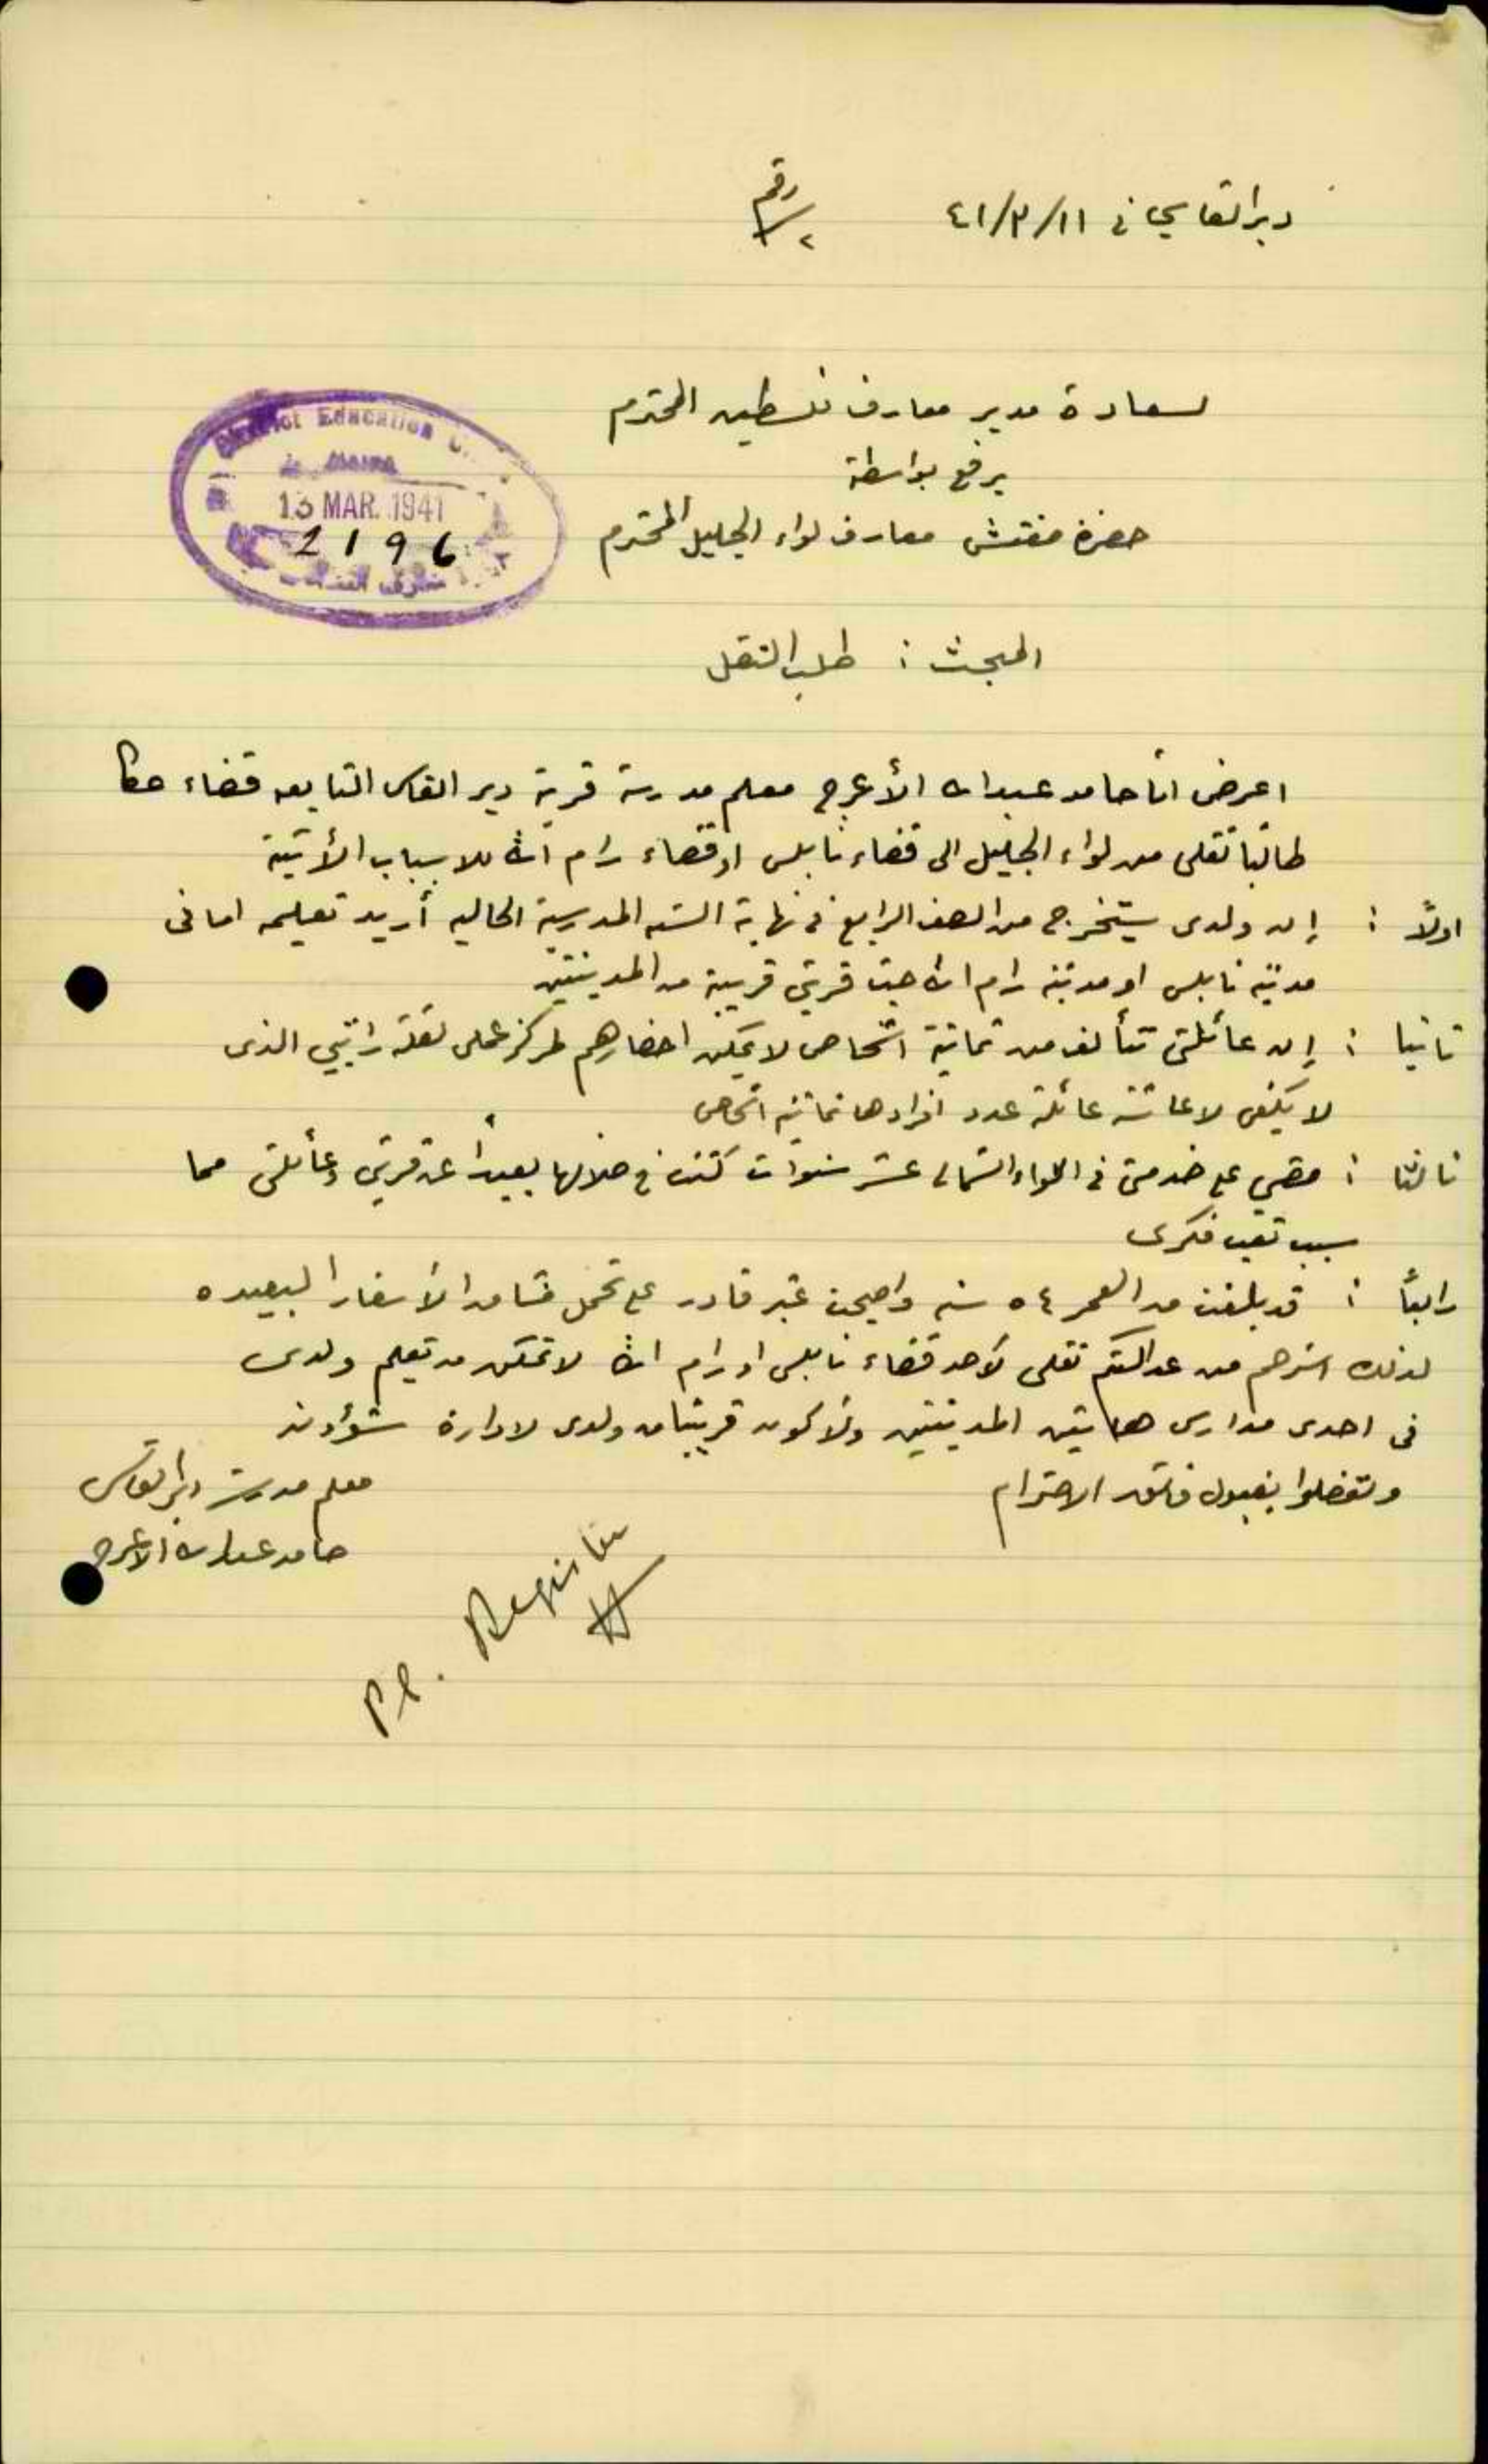 دير القاسي في ١١/٣/٤١
رقم
٢/
لسعادة مدير معارف فلسطين المحترم
يرفع بواسطة
حضرة مفتش معارف لواء الجليل المحترم
District Education
13 MAR. 1941
2196
المبحث : طلب النقل
اعرض انا حامد عبدالله الأعرج معلم مدرسة قرية دير القاسي التابعه قضاء عكا
طالبًا نقلي من لواء الجليل الى قضاء نابلس او قضاء رام الله للاسباب الأتية
اولاً : إن ولدى سيتخرج من الصف الرابع في نهاية السنه المدرسية الحاليه أريد تعليمه اما فى
مدينة نابلس او مدينة رام الله حيث قريتي قريبة من المدينتين
ثانيا : إن عائلتى تتألف من ثمانية اشخاص لا يمكن احضارهم لمركز عملى لقلة راتبي الذى
لا يكفى لاعاشة عائلة عدد افرادها ثمانية اشخاص
ثالثا : مضى على خدمتى في اللواء الشمالى عشر سنوات كنت في خلالها بعيداً عن قريتي وعائلتى مما
سبب تعب فكرى
رابعاً : قد بلغت من العمر ٥٤ سنه واصبحت غير قادر على تحمل مشاق الأسفار البعيده
لذلك استرحم من عدالتكم نقلى لأحد قضاء نابلس او رام الله لاتمكن من تعليم ولدى
فى احدى مدارس هاتين المدينتين ولأكون قريبًا من ولدى لادارة شؤونه
وتفضلوا بقبول فائق الاحترام
معلم مدرسة دير القاسي
حامد عبدالله الأعرج
Pl. Register